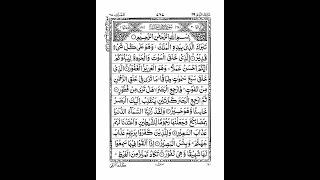 بِسْمِ اللّٰهِ الرَّحْمٰنِ الرَّحِیْمِ
تَبٰرَكَ الَّذِیْ بِیَدِهِ الْمُلْكُ وَهُوَ عَلٰی كُلِّ شَیْءٍ
قَدِیْرُ الَّذِیْ خَلَقَ الْمَوْتَ وَالْحَیٰوةَ لِیَبْلُوَكُمْ
اَیُّكُمْ اَحْسَنُ عَمَلًا وَهُوَ الْعَزِیْزُ الْغَفُوْرُ الَّذِیْ
خَلَقَ سَبْعَ سَمٰوٰتٍ طِبَاقًا مَا تَرٰی فِیْ خَلْقِ الرَّحْمٰنِ
مِنْ تَفٰوُتٍ فَارْجِعِ الْبَصَرَ هَلْ تَرٰی مِنْ فُطُوْرٍ
ثُمَّ ارْجِعِ الْبَصَرَ كَرَّتَیْنِ یَنْقَلِبْ اِلَیْكَ الْبَصَرُ
خَاسِئًا وَّهُوَ حَسِیْرٌ وَلَقَدْ زَیَّنَّا السَّمَآءَ الدُّنْیَا
بِمَصَابِیْحَ وَجَعَلْنٰهَا رُجُوْمًا لِّلشَّیٰطِیْنِ وَاَعْتَدْنَا لَهُمْ
عَذَابَ السَّعِیْرِ وَلِلَّذِیْنَ كَفَرُوْا بِرَبِّهِمْ عَذَابُ
جَهَنَّمَ وَبِئْسَ الْمَصِیْرُ اِذَاۤ اُلْقُوْا فِیْهَا سَمِعُوْا
لَهَا شَهِیْقًا وَّهِیَ تَفُوْرُ تَكَادُ تَمَیَّزُ مِنَ الْغَیْظِ